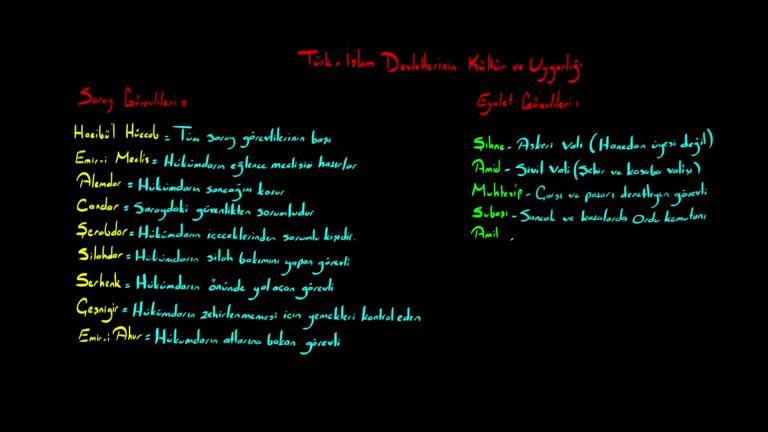 Türk - İslam Devletlerinin Kültür ve Uygarlığı
Saray Görevlileri:
Hacibü'l Hüccab = Tüm saray görevlilerinin başı
Emir-i Meclis = Hükümdarın eğlence meclisini hazırlar
Alemdar = Hükümdarın sancağını korur
Candar = Saraydaki güvenlikten sorumludur
Şerabdar = Hükümdarın içeceklerinden sorumlu kişidir.
Silahdar = Hükümdarın silah bakımını yapan görevli
Serhenk = Hükümdarın önünde yol açan görevli
Çeşnigir = Hükümdarın zehirlenmemesi için yemekleri kontrol eden
Emir-i Ahur = Hükümdarın atlarına bakan görevli
Eyalet Görevlileri:
Şihne - Askeri Vali (Hanedan üyesi değil)
Amid - Sivil Vali (Şehir ve kasaba valisi)
Muhtesip - Çarşı ve pazarı denetleyen görevli
Subaşı - Sancak ve kazalarda Ordu komutanı
Amil